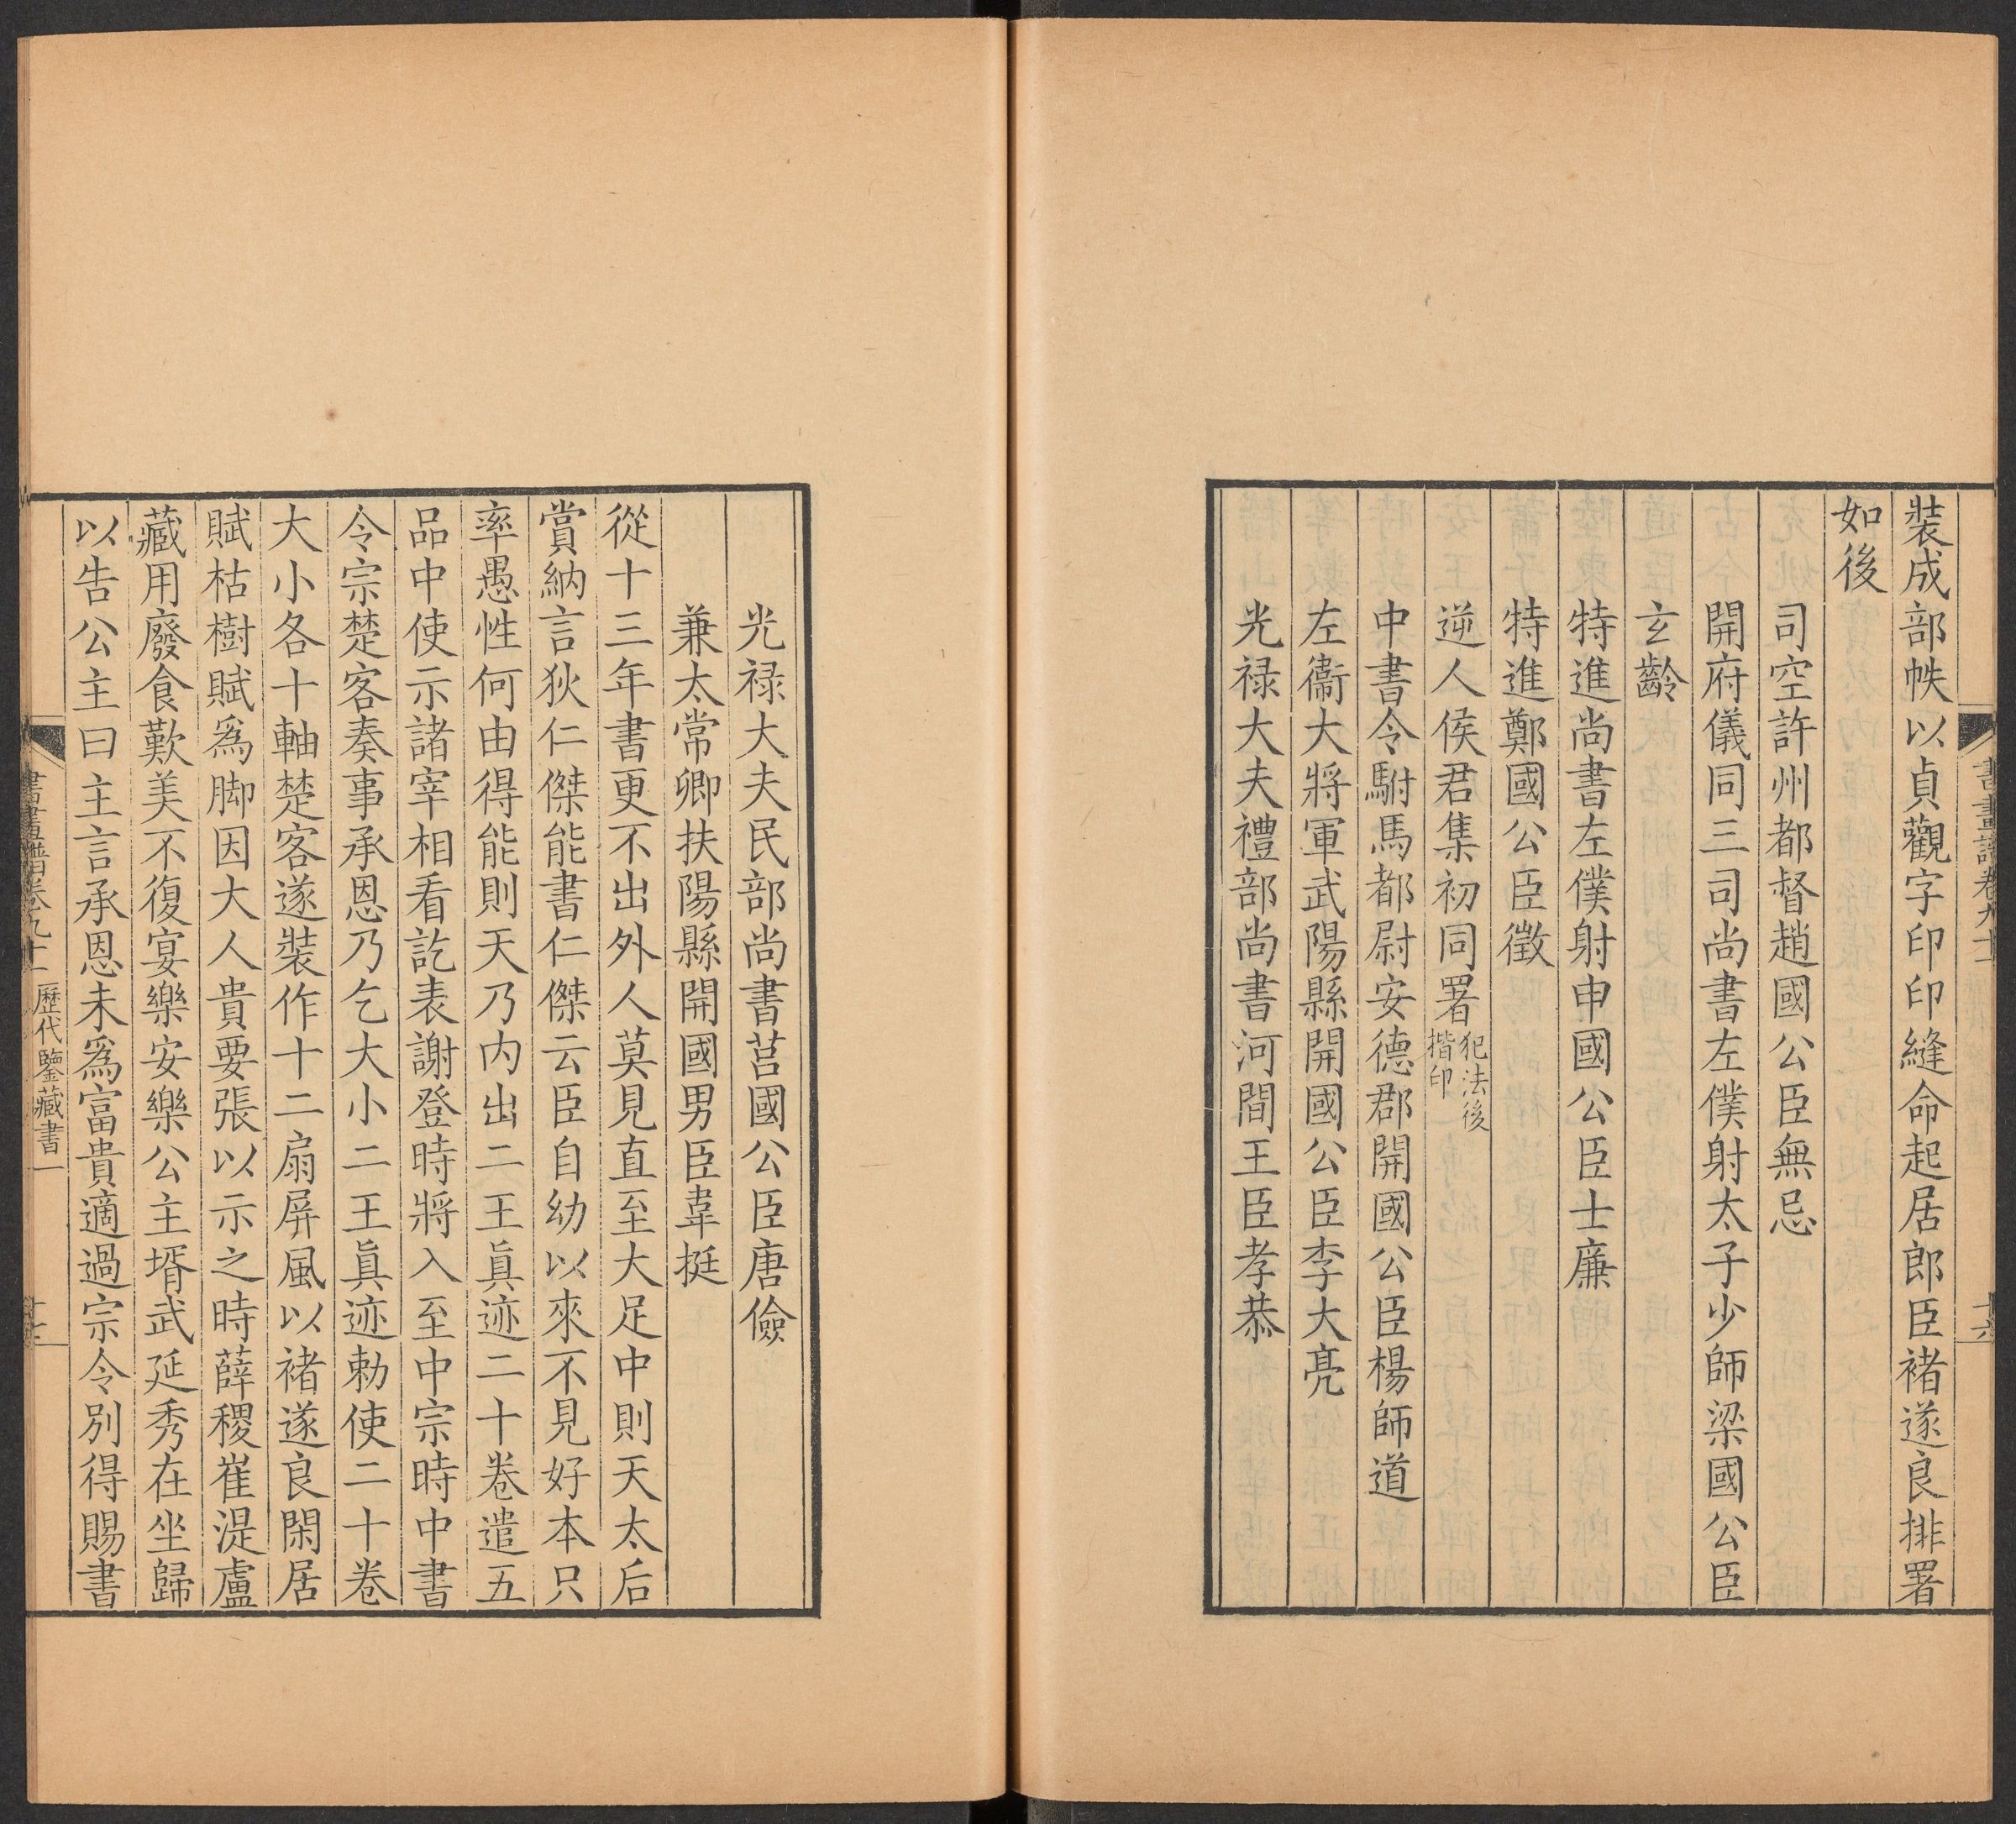 裝成部帙以貞觀字印印縫命起居郎臣褚遂良排署
如後
司空許州都督趙國公臣無忌
開府儀同三司尚書左僕射太子少師梁國公臣
玄齡
特進尚書左僕射申國公臣士廉
特進鄭國公臣徵
逆人侯君集初同署犯法後揩印
中書令駙馬都尉安德郡開國公臣楊師道
左衞大將軍武陽縣開國公臣李大亮
光禄大夫禮部尚書河間王臣孝恭
光禄大夫民部尚書莒國公臣唐儉
兼太常卿扶陽縣開國男臣韋挺
從十三年書更不出外人莫見直至大足中則天太后
賞納言狄仁傑能書仁傑云臣自幼以來不見好本只
率愚性何由得能則天乃内出二王眞迹二十卷遣五
品中使示諸宰相看訖表謝登時將入至中宗時中書
令宗楚客奏事承恩乃乞大小二王眞迹勅使二十卷
大小各十軸楚客遂裝作十二扇屏風以褚遂良閑居
賦枯樹賦爲脚因大人貴要張以示之時薛稷崔湜盧
藏用廢食歎美不復宴樂安樂公主壻武延秀在坐歸
以告公主曰主言承恩未爲富貴適過宗令別得賜書
書畫譜卷九十一 歷代鑒藏書一